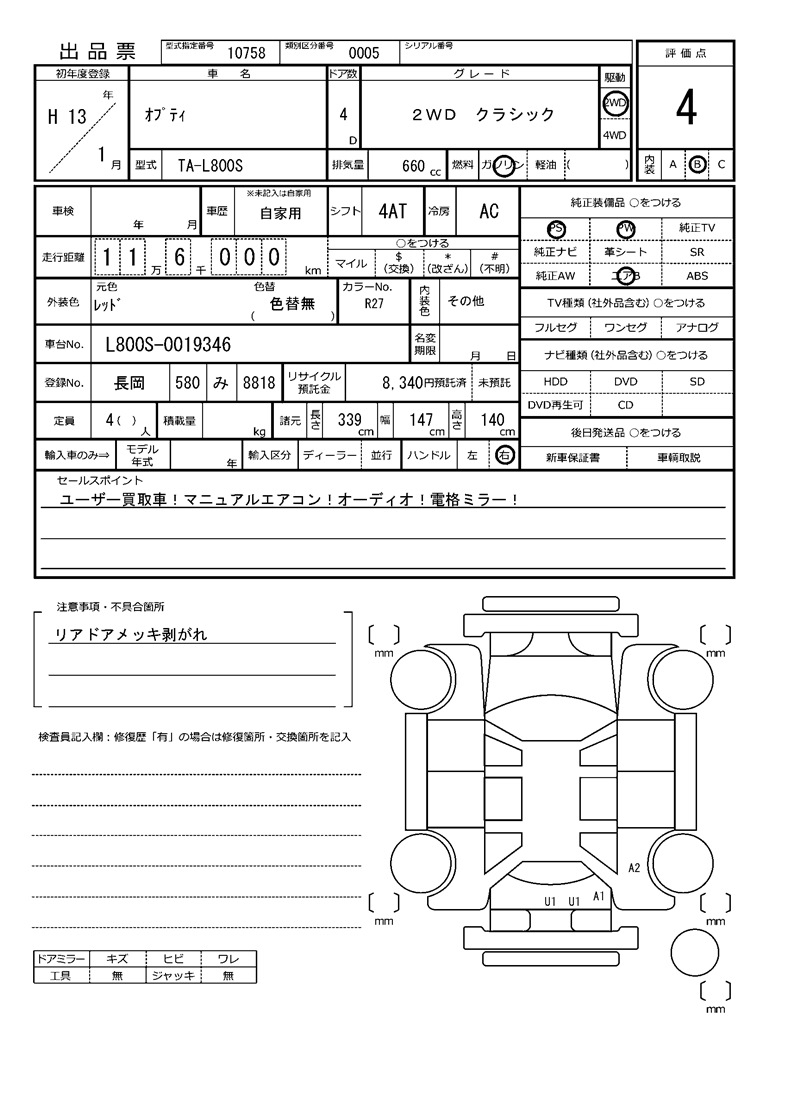 出品票 型式指定番号 10758 類別区分番号 0005 シリアル番号
評価点
初年度登録 車名 ドア数 グレード 駆動
H 13 年 1 月 ｵﾌﾟﾃｨ 4 D 2WD クラシック 2WD 4WD
4
型式 TA-L800S 排気量 660 cc 燃料 ガソリン 軽油 ( )
内装 A B C
車検 年 月 車歴 ※未記入は自家用 自家用 シフト 4AT 冷房 AC
純正装備品 ○をつける
PS PW 純正TV
純正ナビ 革シート SR
純正AW エアB ABS
走行距離 1 1 万 6 千 0 0 0 km
○をつける
マイル $ (交換) * (改ざん) # (不明)
外装色 元色 ﾚｯﾄﾞ 色替 色替無 ( ) カラーNo. R27 内装色 その他
TV種類(社外品含む)○をつける
フルセグ ワンセグ アナログ
車台No. L800S-0019346 名変期限 月 日
ナビ種類(社外品含む) ○をつける
HDD DVD SD
DVD再生可 CD
登録No. 長岡 580 み 8818 リサイクル預託金 8,340円預託済 未預託
定員 4( ) 人 積載量 kg 諸元 長さ 339 cm 幅 147 cm 高さ 140 cm
後日発送品 ○をつける
新車保証書 車輌取説
輸入車のみ⇒ モデル年式 年 輸入区分 ディーラー 並行 ハンドル 左 右
セールスポイント
ユーザー買取車！マニュアルエアコン！オーディオ！電格ミラー！
注意事項・不具合箇所
リアドアメッキ剥がれ
mm
mm
検査員記入欄：修復歴「有」の場合は修復箇所・交換箇所を記入
A2
U1 U1 A1
mm
mm
ドアミラー キズ ヒビ ワレ
工具 無 ジャッキ 無
mm